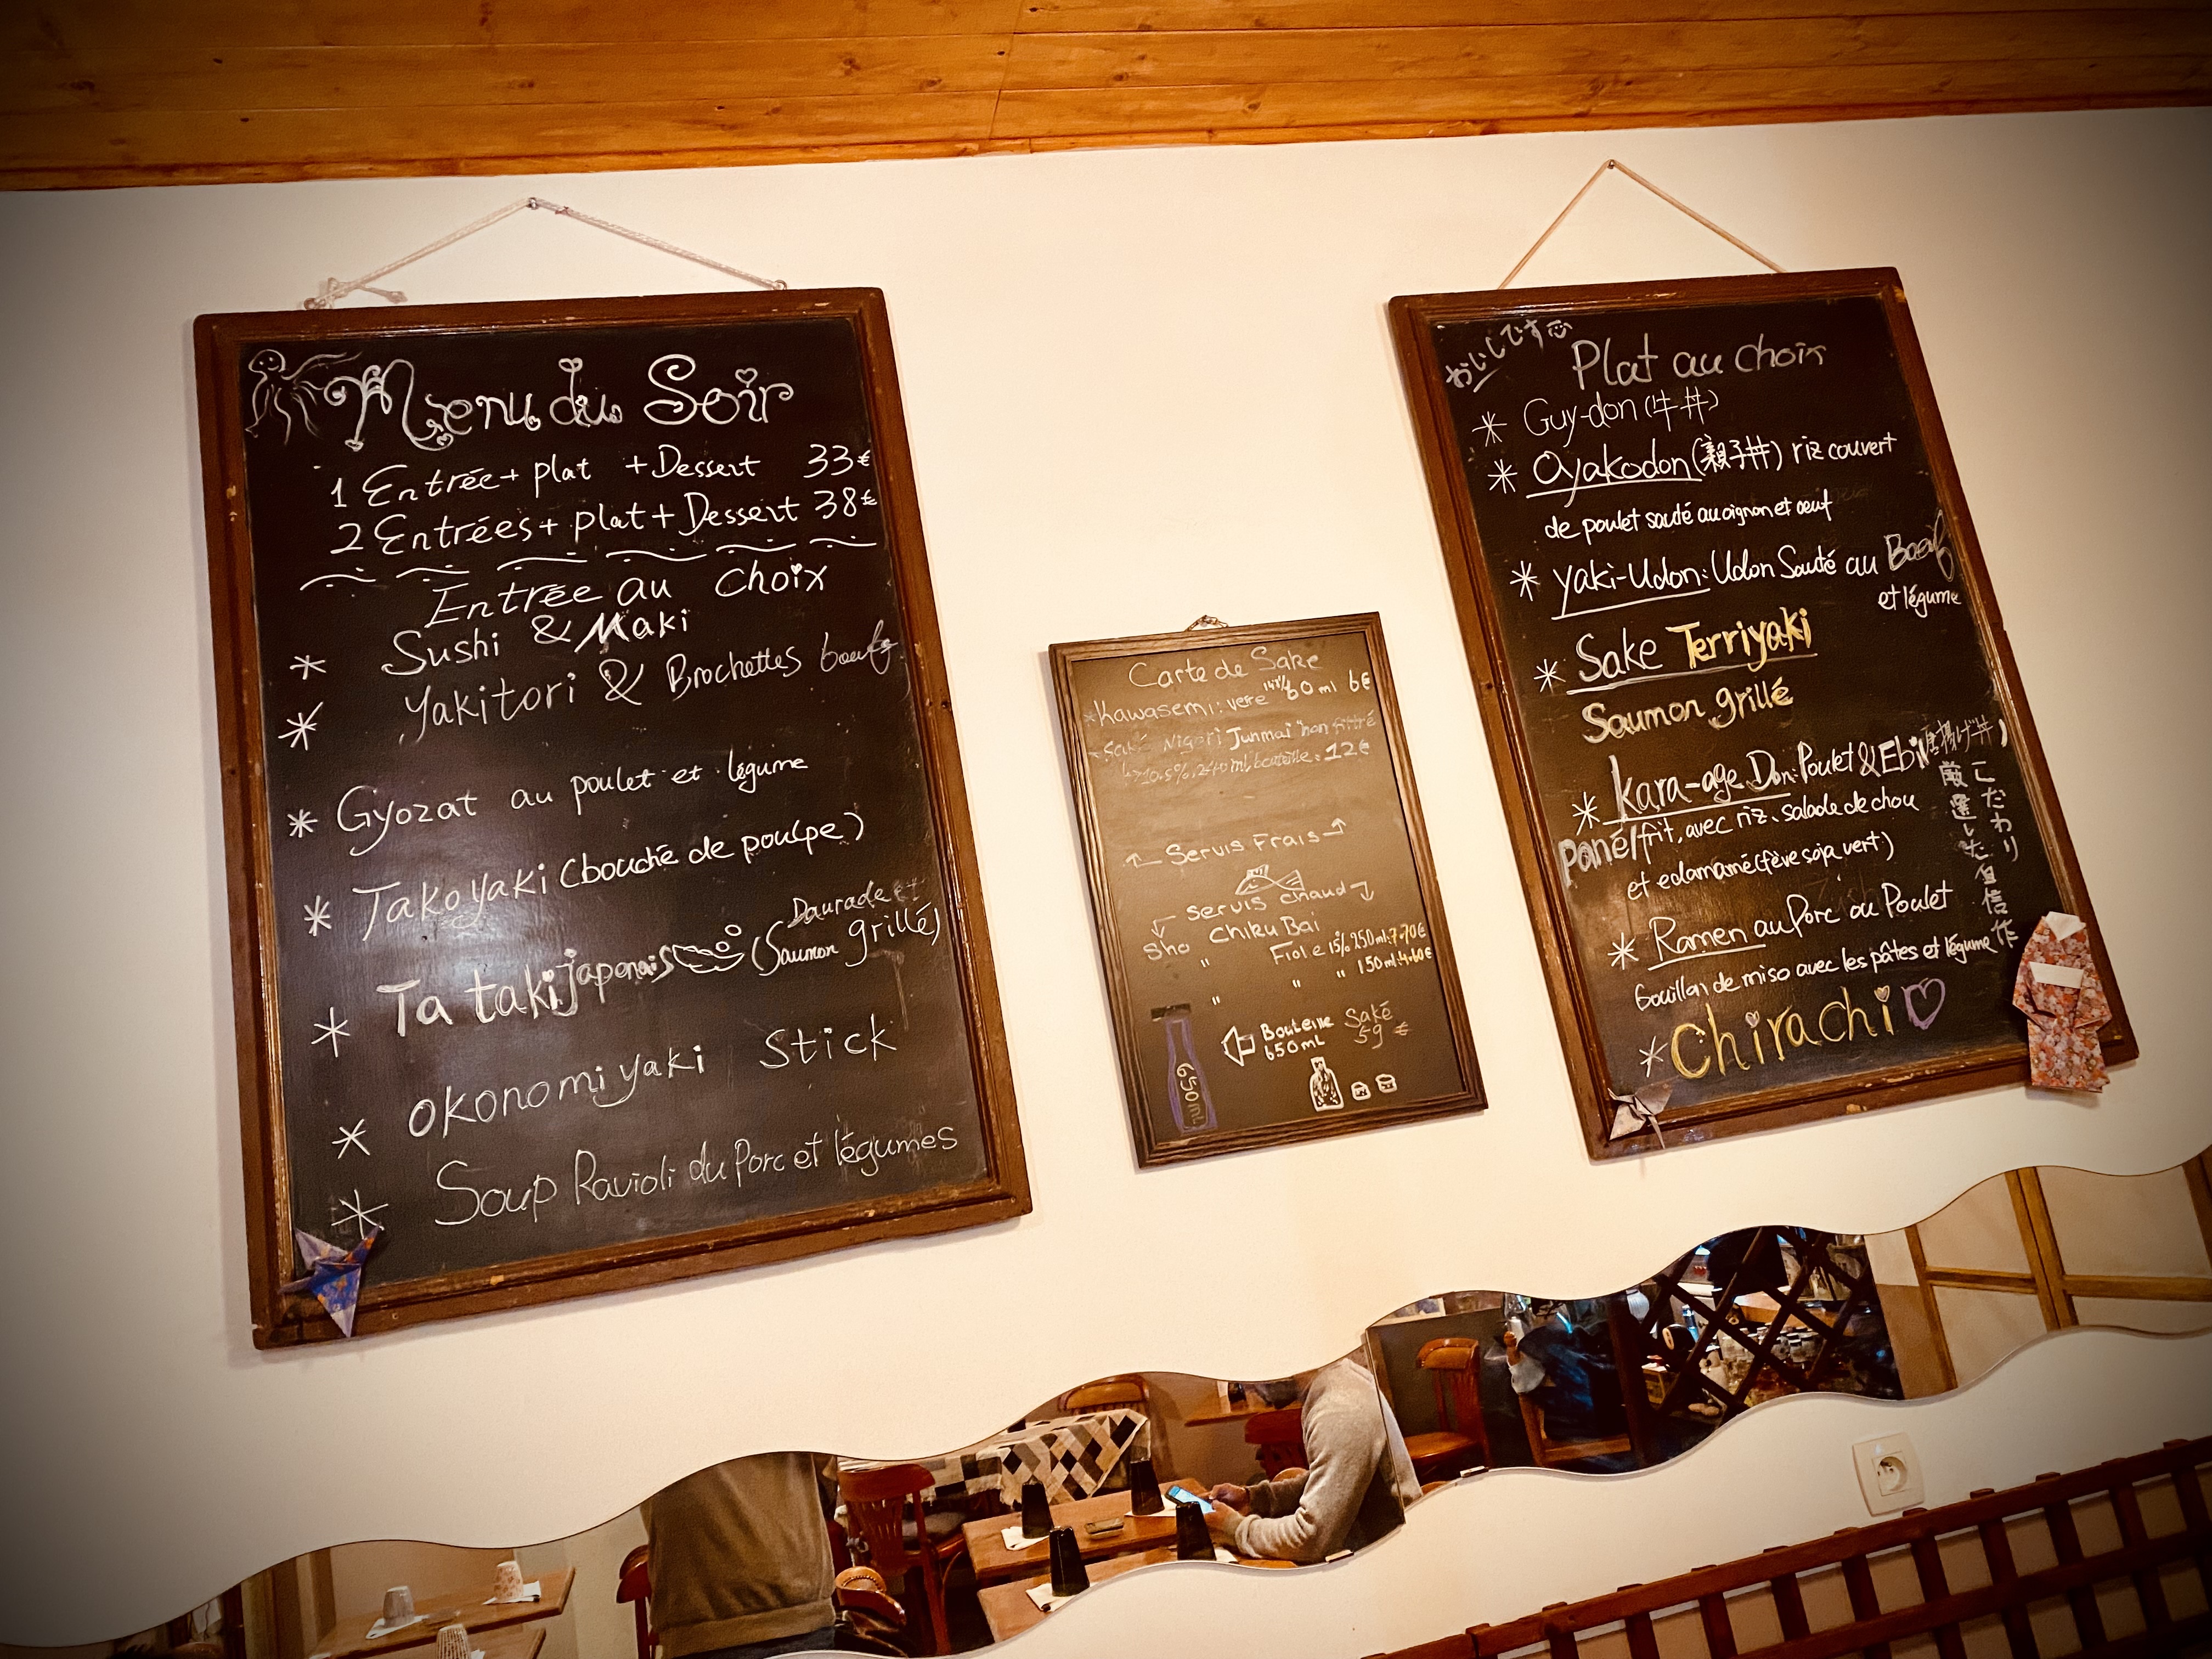 Menu du Soir
1 Entrée + plat + Dessert 33€
2 Entrées + plat + Dessert 38€
Entrée au choix
* Sushi & Maki
* Yakitori & Brochettes boeuf
* Gyozat au poulet et légume
* Takoyaki (bouché de poulpe)
* Ta taki japonais (Daurade et
Saumon grillé)
* okonomiyaki Stick
* Soup Ravioli du Porc et légumes
Carte de Sake
* Kawasemi: vere 14% 60ml 6€
Saké Nigori Junmai non filtré
10.5%, 240ml, bouteille: 12€
Servis Frais
Servis chaud
Sho Chiku Bai
" Fiole 15% 250ml: 7.70€
" " " 150ml: 4.60€
Bouteille Saké
650mL 59€
650ml
おいしいです
Plat au choix
* Guy-don (牛丼)
* Oyakodon (親子丼) riz couvert
de poulet sauté au oignon et oeuf
* yaki-Udon: Udon Sauté au Boeuf
et légume
* Sake Terriyaki
Saumon grillé
* Kara-age Don: Poulet & Ebi (唐揚げ丼)
pané/frit, avec riz, salade de chou
et edamamé (fève soja vert)
こだわり
厳選した自信作
* Ramen au Porc ou Poulet
bouillon de miso avec les pâtes et légume
* Chirachi